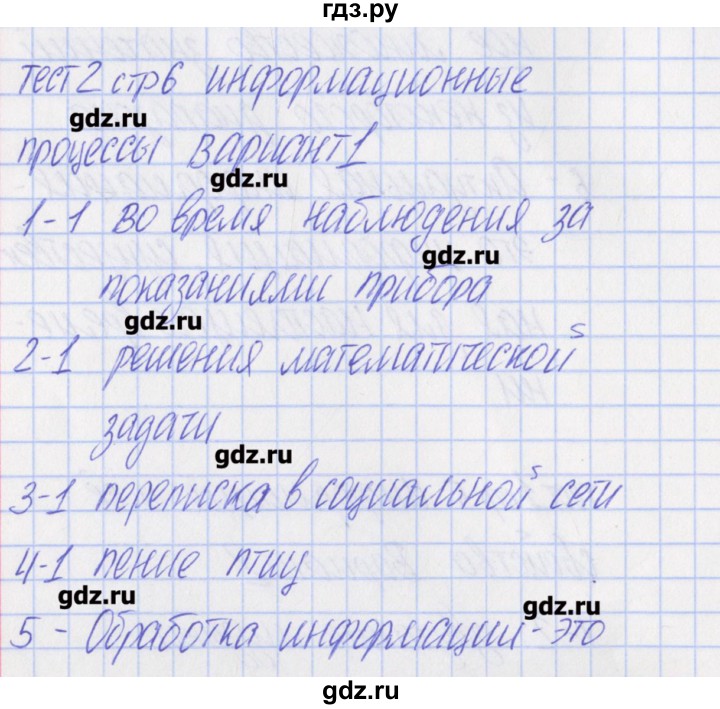 гдз.ру
тест 2 стр 6 информационные
gdz.ru
процессы вариант 1
gdz.ru
1-1 во время наблюдения за
gdz.ru
показаниями прибора
gdz.ru
2-1 решения математической
задачи
gdz.ru
3-1 переписка в социальной сети
4-1 пение птиц
gdz.ru
gdz.ru
5 - Обработка информации - это
gdz.ru